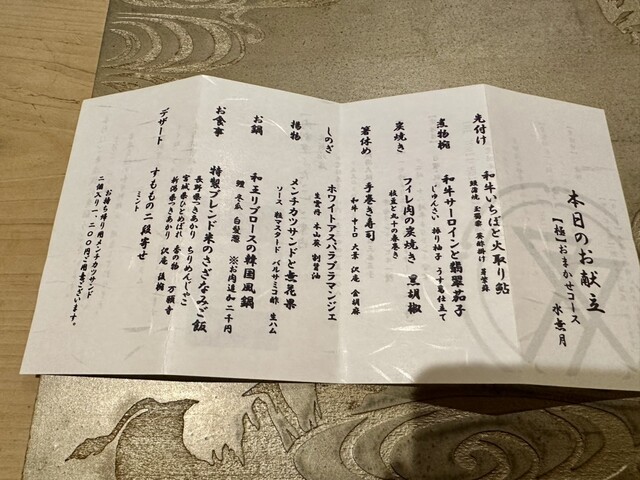 本日のお献立
【極】おまかせコース 水無月
先付け
和牛いちぼと火取り鮎
煮物椀
和牛サーロインと翡翠茄子
じゅんさい 振り柚子 うす葛仕立て
炭焼き
フィレ肉の炭焼き 黒胡椒
枝豆と丸十の春巻き
箸休め
手巻き寿司
和牛 中トロ 大葉 沢庵 金胡麻
しのぎ
ホワイトアスパラブラマンジェ
生雲丹 本山葵 割醤油
揚物
メンチカツサンドと無花果
ソース 粒マスタード バルサミコ酢 生ハム
お鍋
和王リブロースの韓国風鍋
鱧 冬瓜 白髪葱 ※お肉追加二千円
お食事
特製ブレンド米のさざなみご飯
長野県つきあかり ちりめんじゃこ
宮城県ひとめぼれ 香の物 万願寺
新潟県つきあかり 沢庵
デザート
すももの二段寄せ
ミント
お持ち帰り用メンチカツサンド
二個入り一、二〇〇円ご用意ございます。